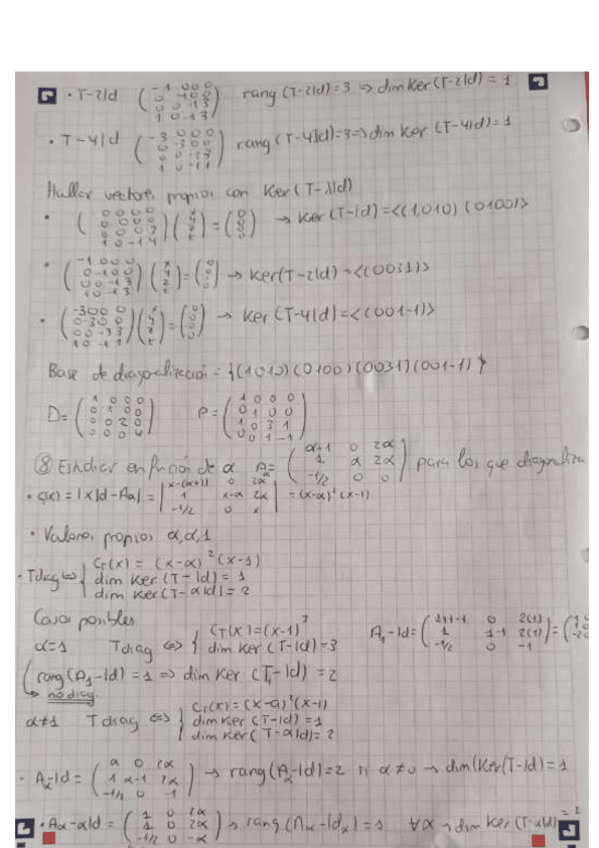 · T-2Id (-1 0 0 0 / 0 -1 0 0 / 0 0 -1 3 / 1 0 -1 3) rang (T-2Id) = 3 ⇒ dim Ker (T-2Id) = 1
· T-4Id (-3 0 0 0 / 0 -3 0 0 / 0 0 -3 3 / 1 0 -1 1) rang (T-4Id) = 3 ⇒ dim Ker (T-4Id) = 1
Hallar vectores propios con Ker (T-λId)
· (0 0 0 0 / 0 0 0 0 / 0 0 0 3 / 1 0 -1 4) (x y z t) = (0 0 0 0) → Ker (T-Id) = <(1,010) (0100)>
· (-1 0 0 0 / 0 -1 0 0 / 0 0 -1 3 / 1 0 -1 3) (x y z t) = (0 0 0 0) → Ker (T-2Id) = <(0031)>
· (-3 0 0 0 / 0 -3 0 0 / 0 0 -3 3 / 1 0 -1 1) (x y z t) = (0 0 0 0) → Ker (T-4Id) = <(001-1)>
Base de diagonalización = {(1010) (0100) (0031) (001-1)}
D = (1 0 0 0 / 0 1 0 0 / 0 0 2 0 / 0 0 0 4) P = (1 0 0 0 / 0 1 0 0 / 1 0 3 1 / 0 0 1 -1)
⑧ Estudiar en función de α Aα = (α+1 0 2α / 1 α 2α / -1/2 0 0) para los que diagonaliza
· q(x) = |xId - Aα| = |x-(α+1) 0 2α / 1 x-α 2α / -1/2 0 x| = (x-α)² (x-1)
· Valores propios α, α, 1
· T diag ⇔ { CT(x) = (x-α)² (x-1)
dim Ker (T-Id) = 1
dim Ker (T-αId) = 2
Casos posibles
α=1 T diag ⇔ { CT(x) = (x-1)³
dim Ker (T-Id) = 3
A₁-Id = (1+1-1 0 2(1) / 1 1-1 2(1) / -1/2 0 -1) =
rang (A₁-Id) = 1 ⇒ dim Ker (T₁-Id) = 2
↳ no diag.
α≠1 T diag ⇔ { CT(x) = (x-α)² (x-1)
dim Ker (T-Id) = 1
dim Ker (T-αId) = 2
· Aα-Id = (α 0 2α / 1 α-1 2α / -1/2 0 -1) → rang (Aα-Id) = 2 si α≠0 → dim (Ker (T-Id) = 1
· Aα-αId = (1 0 2α / 1 0 2α / -1/2 0 -α) → rang (Aα-Idα) = 1 ∀α → dim Ker (T-αId) = 2